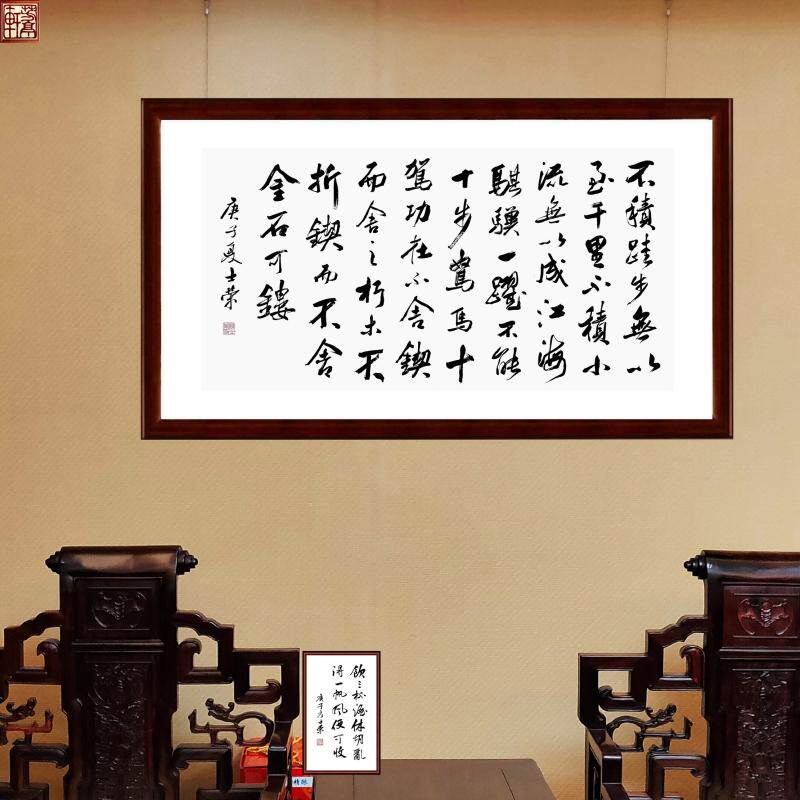 不積跬步無以
至千里不積小
流無以成江海
騏驥一躍不能
十步駑馬十
駕功在不舍鍥
而舍之朽木不
折鍥而不舍
金石可鏤
庚子夏士榮
休胡亂
得一帆風便可收
庚子夏士榮